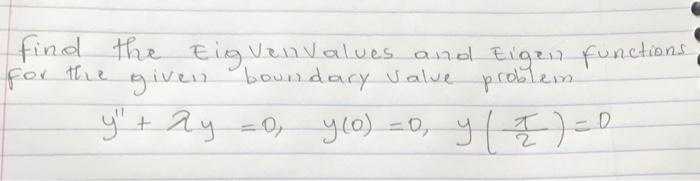 find the Eigvenvalues and Eigen functions
for the given boundary value problem
y'' + λy = 0, y(0) = 0, y(π/2) = 0